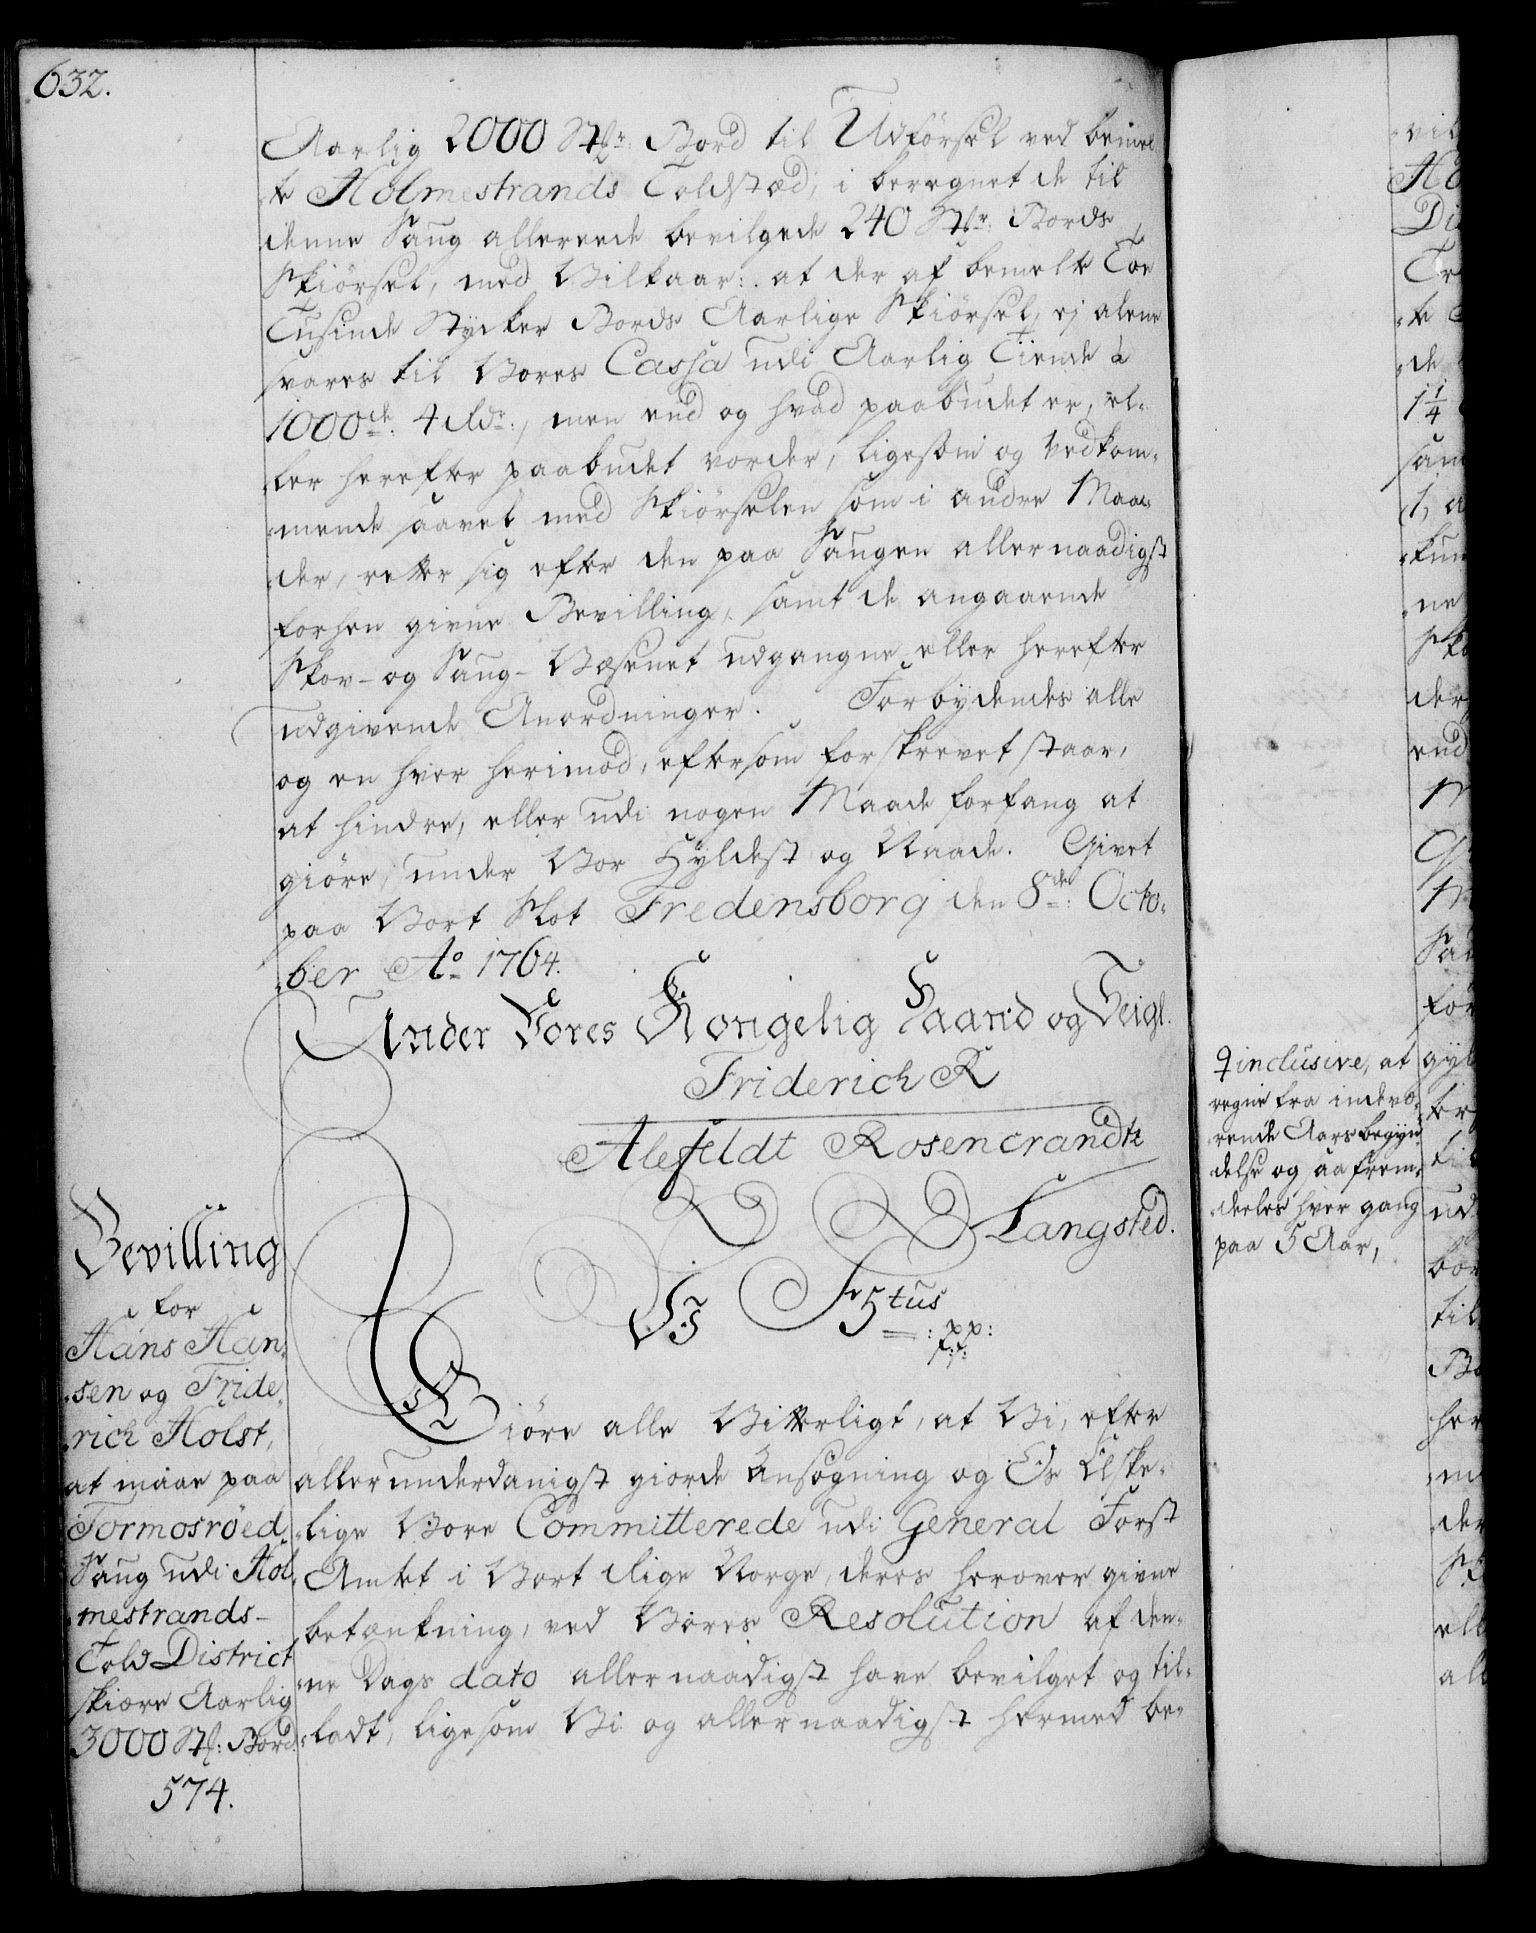 632.
Aarlig 2000 Stkr: Bord til Udförsel ved bemel¬
te Holmestrands Toldsted, i beregnet de til
denne Saug allereede bevilgede 240 Stkr: Bords
Skiörsel, med Vilkaar: at der af bemelte Toe
Tusinde Stycker Bords Aarlige Skiörsel, ej alene
svares til Vores Cassa udi Aarlig Tiende à
1000de: 4 Rdr:, men end og hvad paabudet er, el¬
ler herefter paabudet vorder, ligesom og Vedkom¬
mende saavel med Skiörselen som i andre Maa¬
der, retter sig efter den paa Saugen allernaadigst
forhen givne Bevilling, samt de angaaende
Skov- og Saug-Væsenet udgangne eller herefter
udgivende Anordninger. Forbydendes alle
og en hver herimod, eftersom forskrevet staar,
at hindre, eller udi nogen Maade forfang at
giöre, under Vor Hyldest og Naade. Givet
paa Vort Slot Fredensborg den 8de: Octo¬
ber Ao 1764.
Under Vores Kongelig Haand og Seigl.
Friderich R
Alefeldt Rosencrandtz
Langsted.
Bevilling
for
Hans Han¬
sen og Fride¬
rich Holst,
at maae paa
Tormosröed
Saug udi Hol
mestrands-
Told District
skiære Aarlig
3000 Stk: Bord.
574.
Vi Fr 5tus
: pp:
Giöre alle Vitterligt, at Vi, efter
allerunderdanigst giorde Ansögning og Os Elske¬
lige Vore Committerede udi General Forst
Amtet i Vort Rige Norge, deres herover givne
betænkning, ved Vores Resolution af den¬
ne Dags dato allernaadigst have bevilget og til¬
ladt, ligesom Vi og allernaadigst hermed be¬
inclusive, at
regne fra indevæ¬
rende Aars begyn
delse og saa frem¬
deeles hver gang
paa 5 Aar,